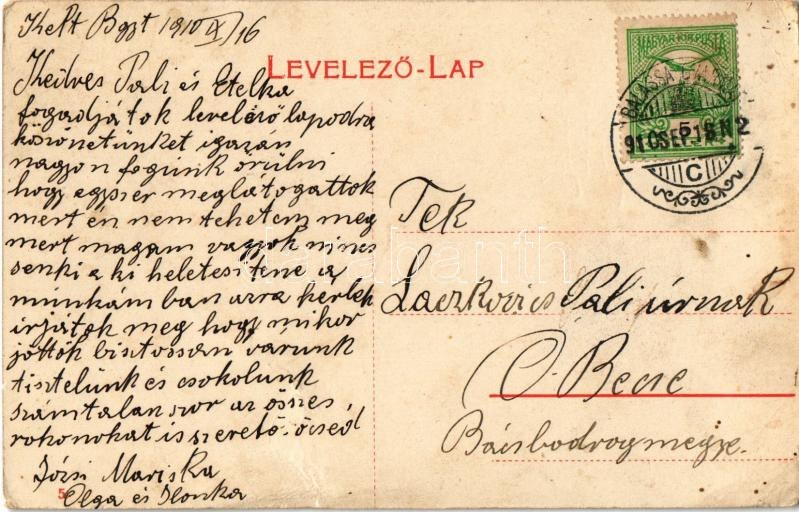 Kelt Bgyt 1910 IX/16
LEVELEZŐ-LAP
Kedves Pali és Etelka
fogadjátok levelező lapodra
köszönetünket igazán
nagyon fogunk örülni
hogy egyszer meglátogattok
mert én nem tehetem meg
mert magam vagyok nincs
senki a ki heletesitene a
munkámban arra kérlek
irjátok meg hogy mikor
jöttök bisztossan varunk
tisztelünk és csokolunk
számtalanszor az összes
rokonokat is szerető öcséd
Józsi Mariska
Olga és Ilonka
5
MAGYAR KIR. POSTA
5
910 SEP. 18 N 2
C
Tek
Laczkovics Pali úrnak
O. Becse
Bácsbodrogmegye.
darabanth